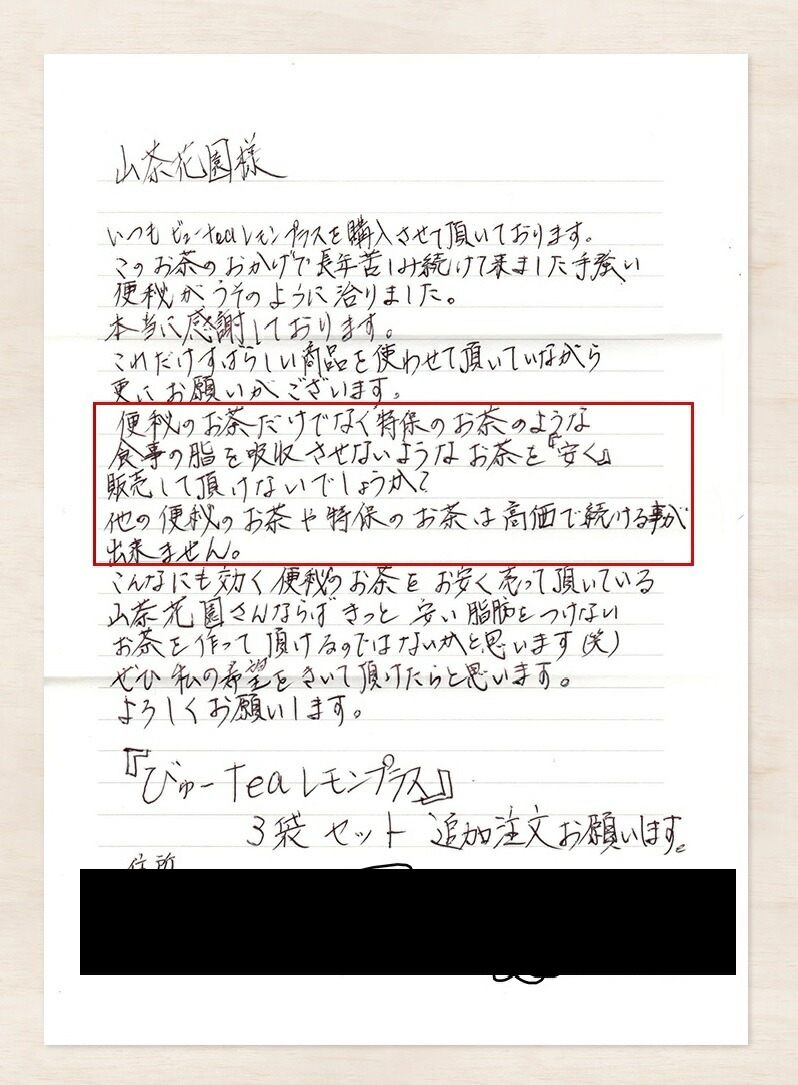 山茶花園様
いつもビューteaレモンプラスを購入させて頂いております。
このお茶のおかげで長年苦しみ続けて来ました手強い
便秘がうそのように治りました。
本当に感謝しております。
これだけすばらしい商品を使わせて頂いていながら
更にお願いがございます。
便秘のお茶だけでなく特保のお茶のような
食事の脂を吸収させないようなお茶を『安く』
販売して頂けないでしょうか?
他の便秘のお茶や特保のお茶は高価で続ける事が
出来ません。
こんなにも効く便秘のお茶をお安く売って頂いている
山茶花園さんならばきっと安い脂肪をつけない
お茶を作って頂けるのではないかと思います(笑)
ぜひ私の希望をきいて頂けたらと思います。
よろしくお願いします。
『びゅーteaレモンプラス』
3袋セット 追加注文お願いします。
住所